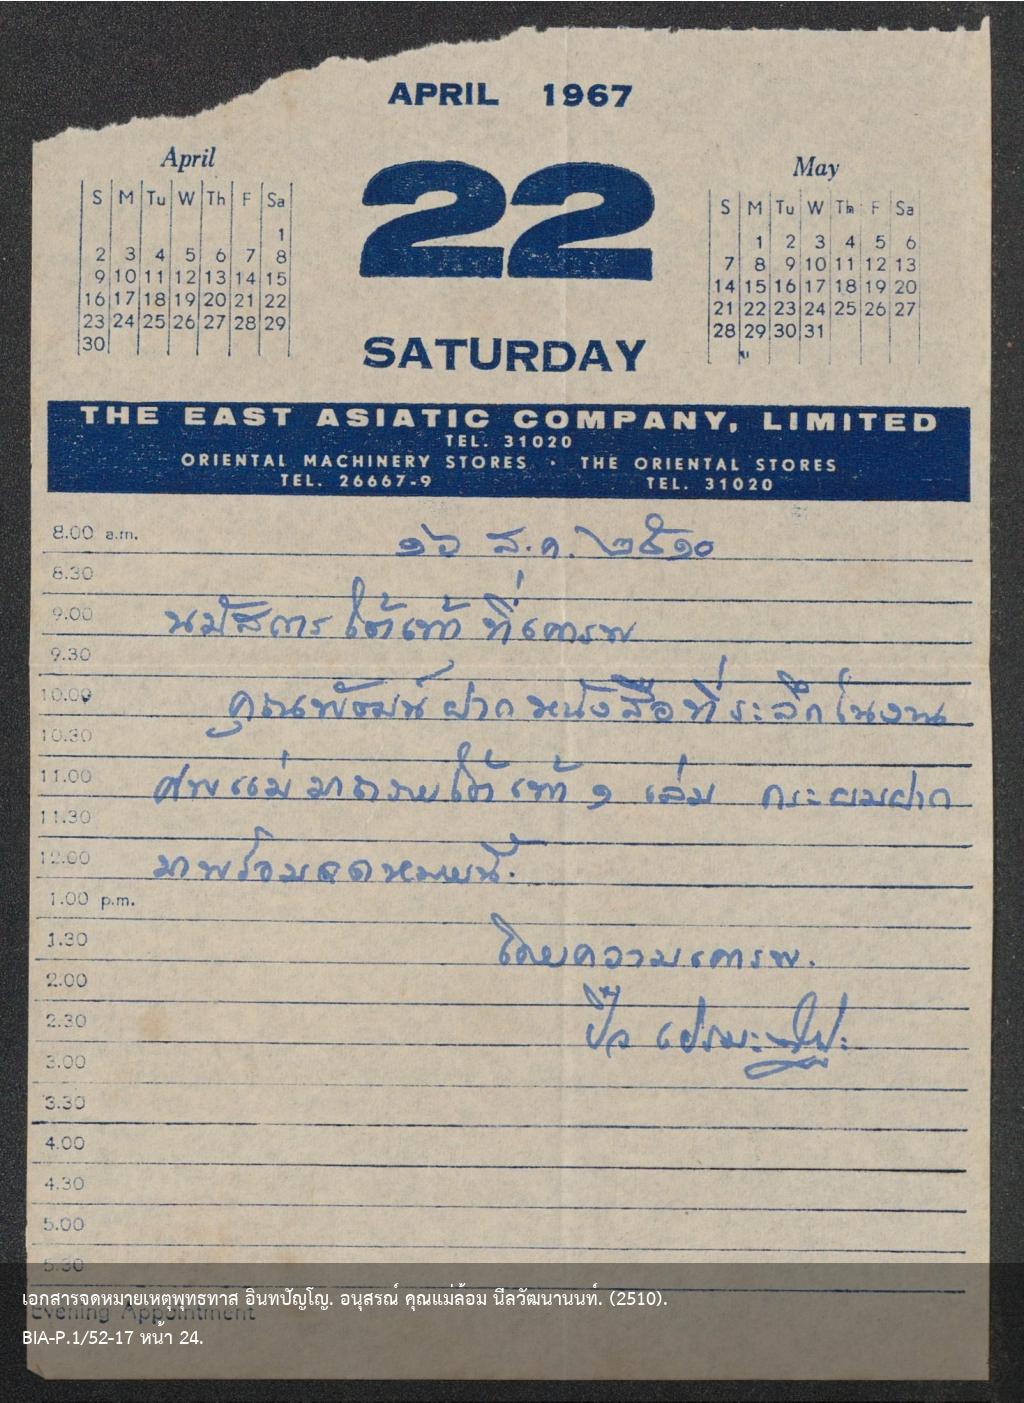 APRIL 1967
April
S M Tu W Th F Sa
1
2 3 4 5 6 7 8
9 10 11 12 13 14 15
16 17 18 19 20 21 22
23 24 25 26 27 28 29
30
22
SATURDAY
May
S M Tu W Th F Sa
1 2 3 4 5 6
7 8 9 10 11 12 13
14 15 16 17 18 19 20
21 22 23 24 25 26 27
28 29 30 31
THE EAST ASIATIC COMPANY, LIMITED
TEL. 31020
ORIENTAL MACHINERY STORES · THE ORIENTAL STORES
TEL. 26667-9 TEL. 31020
8.00 a.m.
๑๖ ส.ค. ๒๕๑๐
8.30
9.00
นมัสการ ใต้เท้า ที่เคารพ
9.30
10.00
คุณพัฒน์ ฝาก หนังสือ ที่ระลึก ในงาน
10.30
11.00
ศพแม่ มาถวายใต้เท้า ๑ เล่ม กระผมฝาก
11.30
12.00
มาพร้อมจดหมายนี้.
1.00 p.m.
1.30
โดยความเคารพ.
2.00
2.30
ปิ๋ว
3.00
3.30
4.00
4.30
5.00
5.30
Evening Appointment
เอกสารจดหมายเหตุพุทธทาส อินทปัญโญ. อนุสรณ์ คุณแม่ล้อม นีลวัฒนานนท์. (2510).
BIA-P.1/52-17 หน้า 24.